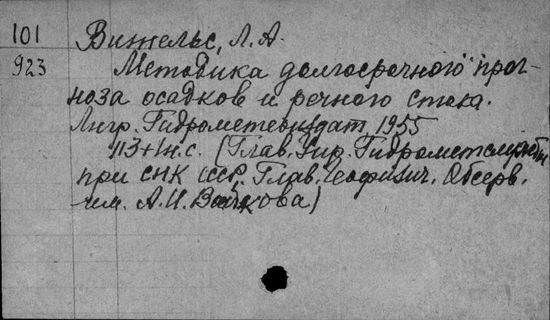 101
923
Вительс, Л. А.
Методика долгосрочного прог-
ноза осадков и речного стока.
Лнгр. Гидрометеоиздат, 1955
113+1н.с. (Глав. Упр. Гидрометслужбы
при СНК СССР. Глав. Геофизич. Обсерв.
им. А. И. Воейкова)